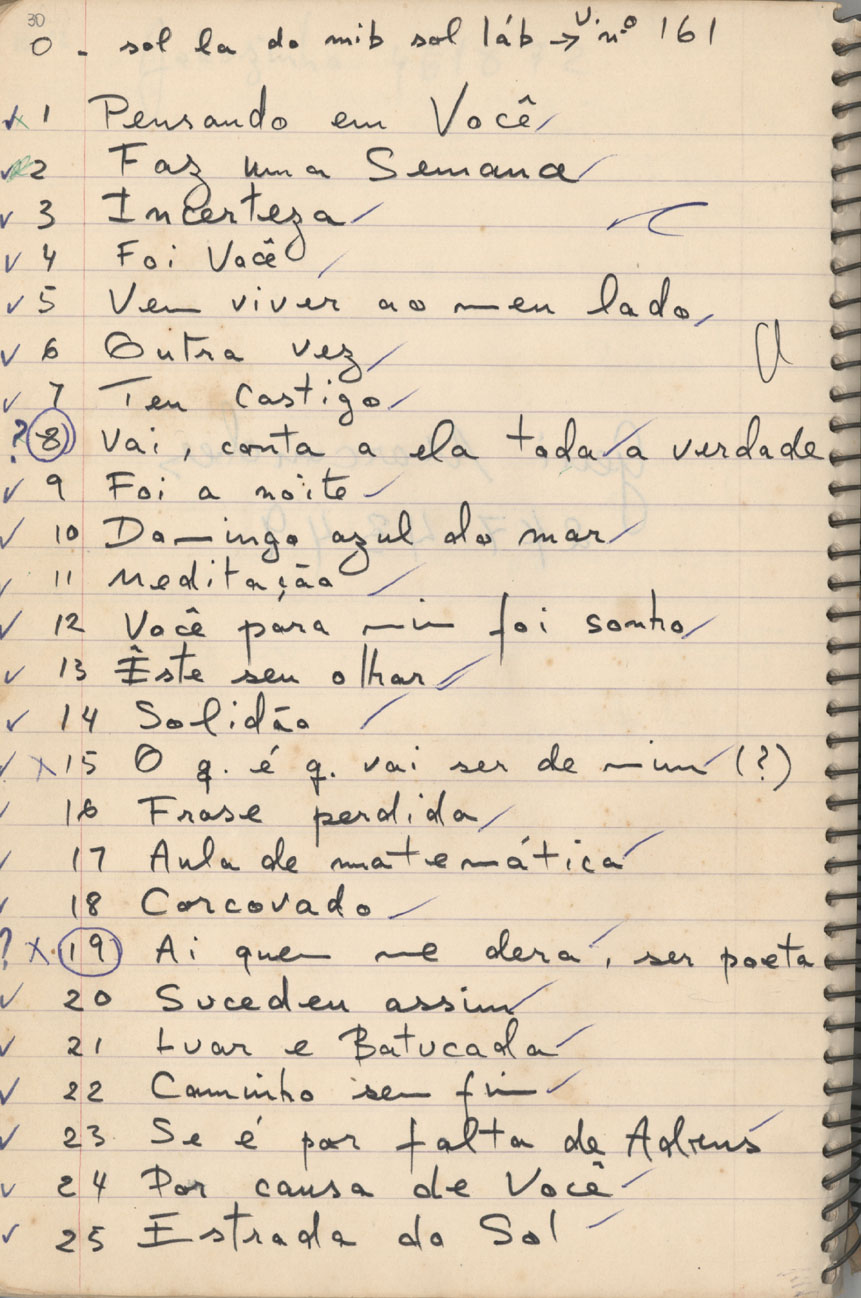 30
0 - sol la do mib sol láb → v. nº 161
1 Pensando em Você
2 Faz uma Semana
3 Incerteza
4 Foi Você
5 Vem viver ao meu lado
6 Outra vez
7 Teu Castigo
? 8 Vai, conta a ela toda a verdade
9 Foi a noite
10 Domingo azul do mar
11 Meditação
12 Você para mim foi sonho
13 Êste seu olhar
14 Solidão
x 15 O q. é q. vai ser de mim (?)
16 Frase perdida
17 Aula de matemática
18 Corcovado
? x 19 Ai quem me dera, ser poeta
20 Sucedeu assim
21 Luar e Batucada
22 Caminho sem fim
23 Se é por falta de Adeus
24 Por causa de Você
25 Estrada do Sol